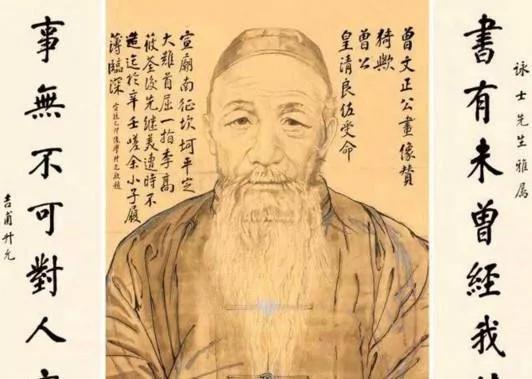 詠士先生雅属
書有未曾經我
曾文正公畫像贊
猗歟
曾公
皇清良佐受命
宣廟南征坎坷平定
大難首屈一指季高
筱荃後先繼美遭時不
造迄於辛壬嗟余小子履
薄臨深
事無不可對人
吉甫升允